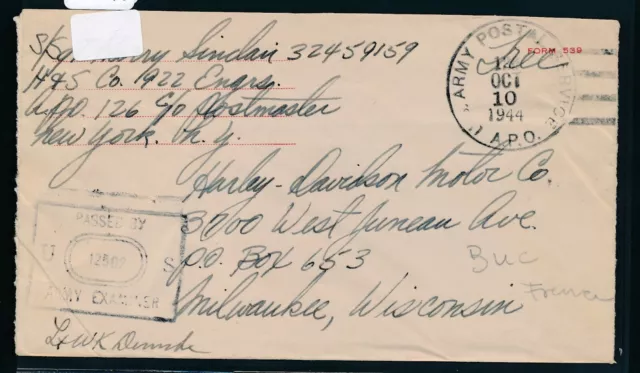 S/Sgt Harry Sinclair 32459159
H&S Co. 1922 Engrs.
A.P.O. 126 c/o Postmaster
New York. N.Y.
Free
FORM 539
ARMY POSTAL SERVICE
OCT
10
1944
A.P.O.
Harley-Davidson Motor Co.
3700 West Juneau Ave.
P.O. Box 653
Milwaukee, Wisconsin
Buc
France
PASSED BY
U S
ARMY EXAMINER
Lt WK